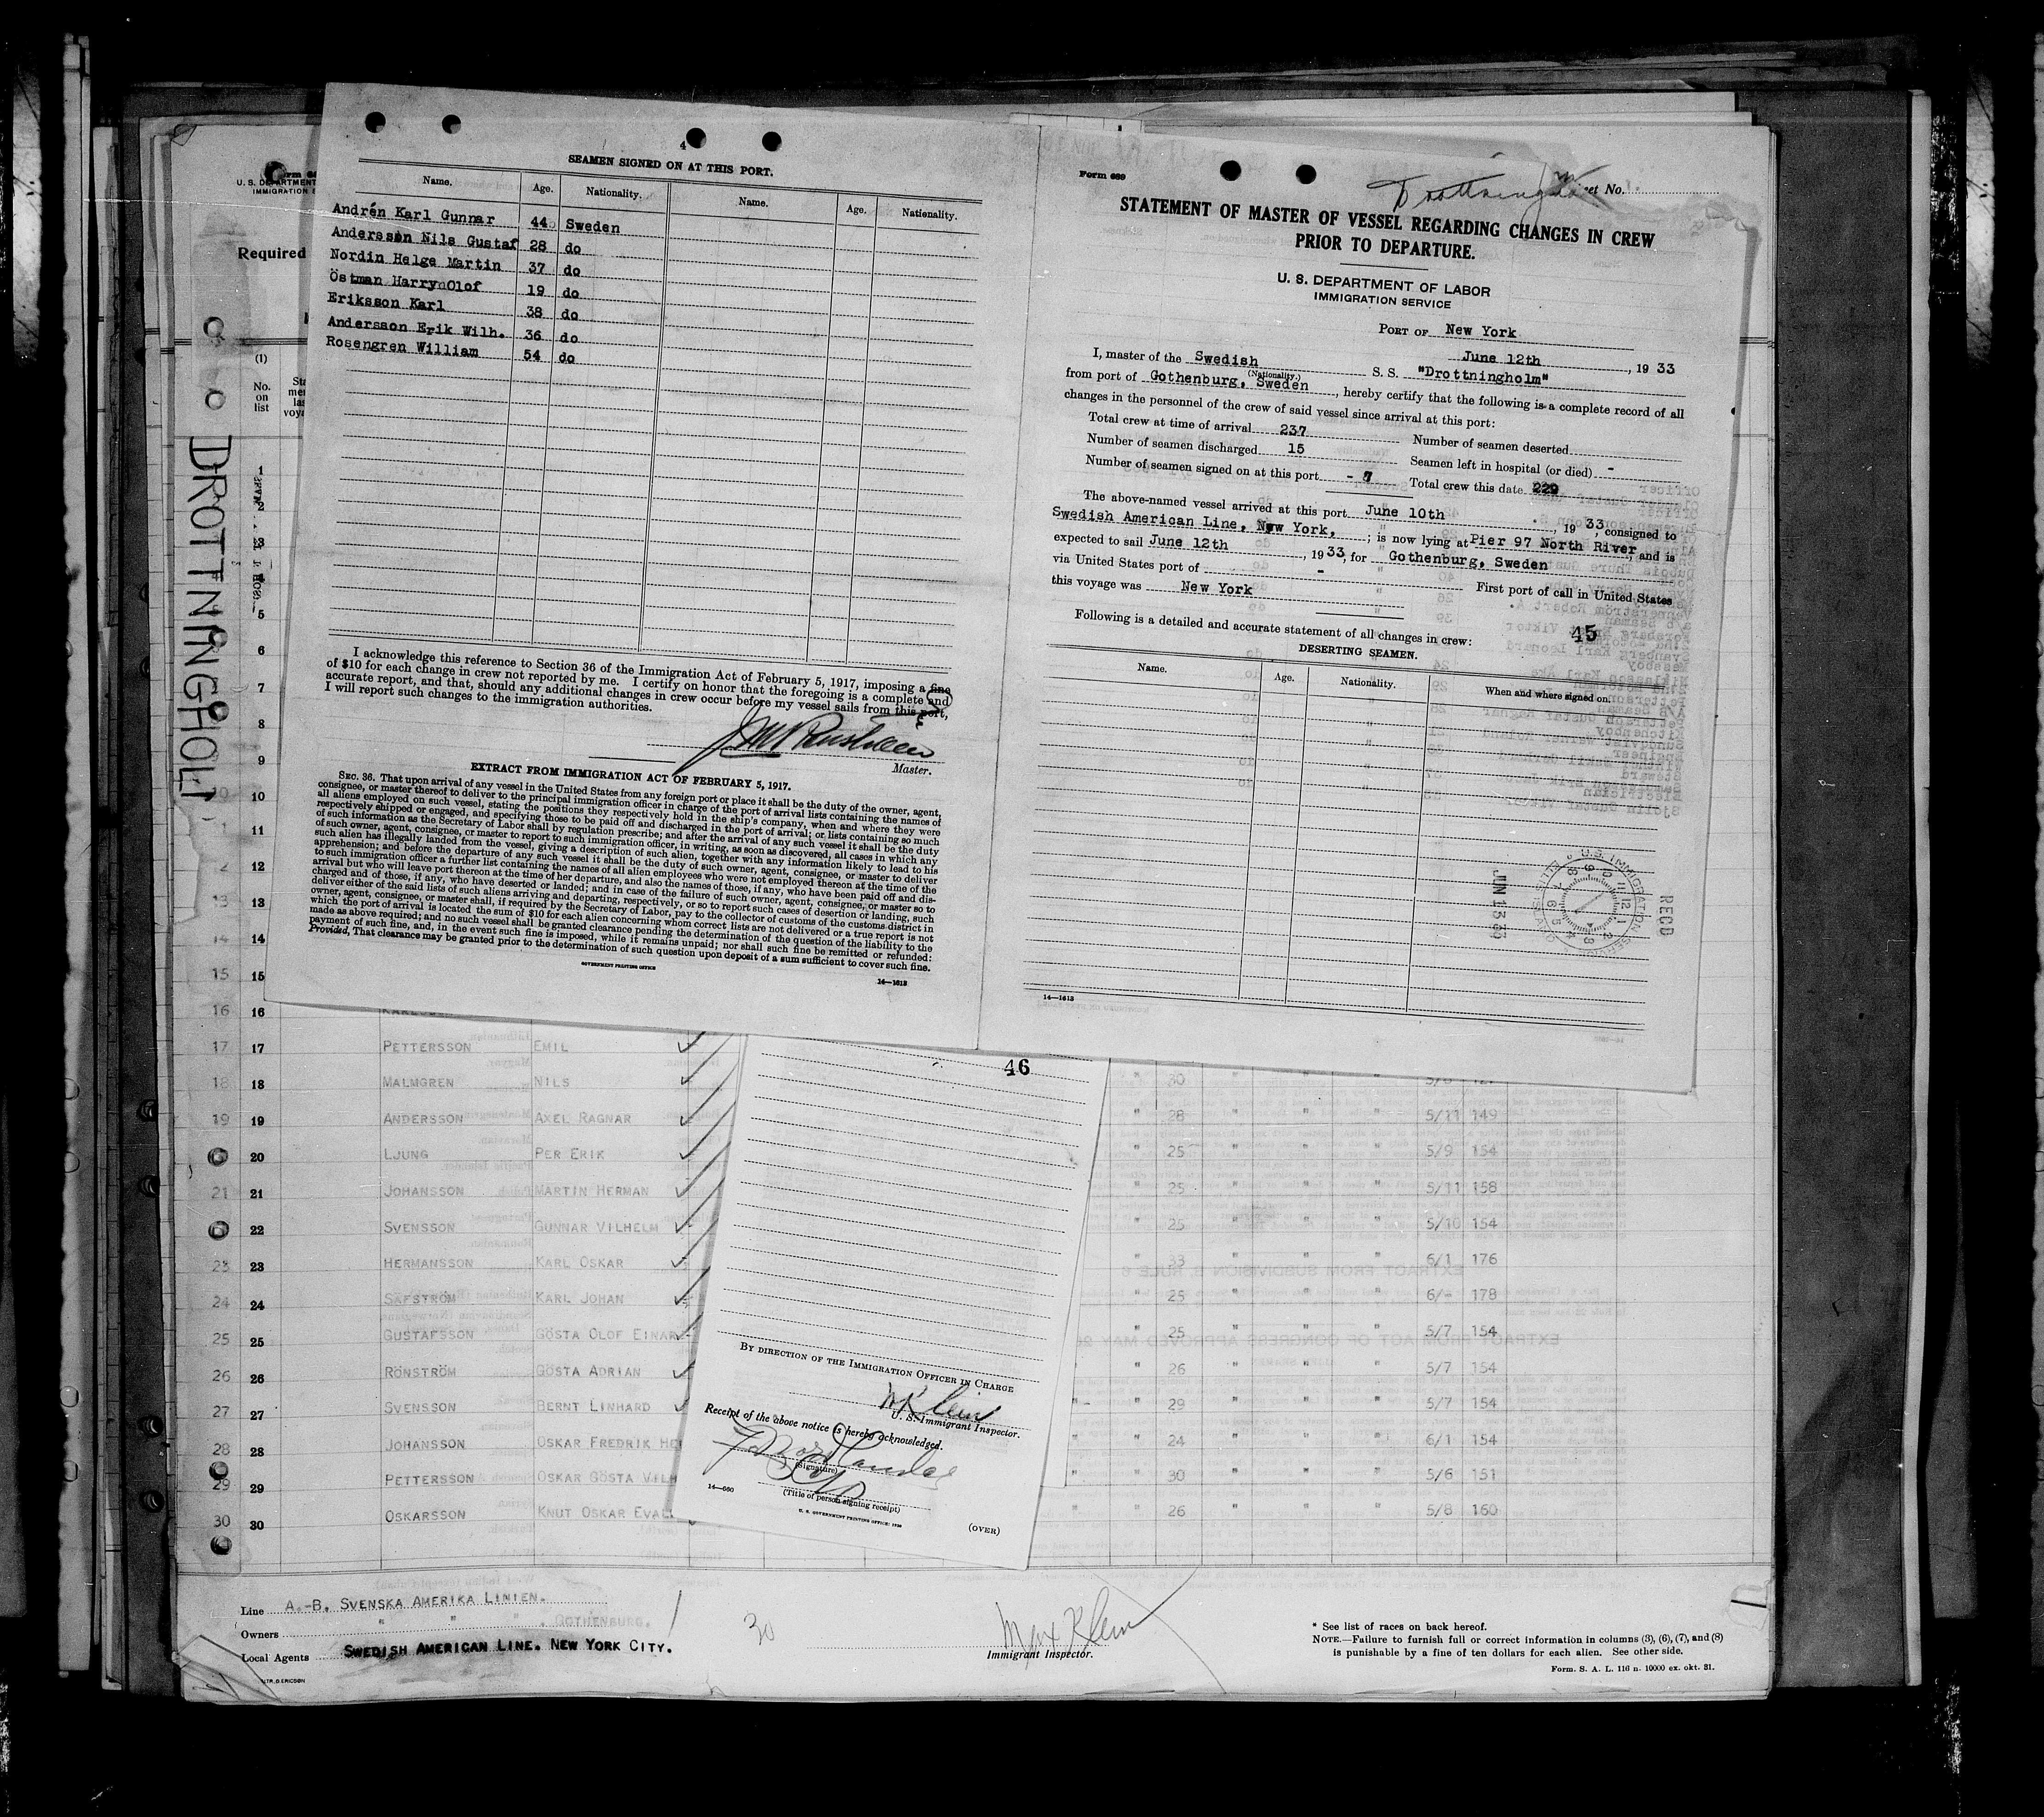 4
SEAMEN SIGNED ON AT THIS PORT.
Name. Age. Nationality. Name. Age. Nationality.
Andrén Karl Gunnar 44 Sweden
Andersson Nils Gustaf 28 do
Nordin Helge Martin 37 do
Östman Harry Olof 19 do
Eriksson Karl 38 do
Andersson Erik Wilh. 36 do
Rosengren William 54 do
I acknowledge this reference to Section 36 of the Immigration Act of February 5, 1917, imposing a fine
of $10 for each change in crew not reported by me. I certify on honor that the foregoing is a complete and
accurate report, and that, should any additional changes in crew occur before my vessel sails from this port,
I will report such changes to the immigration authorities.
Master.
EXTRACT FROM IMMIGRATION ACT OF FEBRUARY 5, 1917.
SEC. 36. That upon arrival of any vessel in the United States from any foreign port or place it shall be the duty of the owner, agent,
consignee, or master thereof to deliver to the principal immigration officer in charge of the port of arrival lists containing the names of
all aliens employed on such vessel, stating the positions they respectively hold in the ship's company, when and where they were
respectively shipped or engaged, and specifying those to be paid off and discharged in the port of arrival; or lists containing so much
of such information as the Secretary of Labor shall by regulation prescribe; and after the arrival of any such vessel it shall be the duty
of such owner, agent, consignee, or master to report to such immigration officer, in writing, as soon as discovered, all cases in which any
such alien has illegally landed from the vessel, giving a description of such alien, together with any information likely to lead to his
apprehension; and before the departure of any such vessel it shall be the duty of such owner, agent, consignee, or master to deliver
to such immigration officer a further list containing the names of all alien employees who were not employed thereon at the time of the
arrival but who will leave port thereon at the time of her departure, and also the names of those, if any, who have been paid off and dis-
charged and of those, if any, who have deserted or landed; and in case of the failure of such owner, agent, consignee, or master so to
deliver either of the said lists of such aliens arriving and departing, respectively, or so to report such cases of desertion or landing, such
owner, agent, consignee, or master shall, if required by the Secretary of Labor, pay to the collector of customs of the customs district in
which the port of arrival is located the sum of $10 for each alien concerning whom correct lists are not delivered or a true report is not
made as above required; and no such vessel shall be granted clearance pending the determination of the question of the liability to the
payment of such fine, and, in the event such fine is imposed, while it remains unpaid; nor shall such fine be remitted or refunded:
Provided, That clearance may be granted prior to the determination of such question upon deposit of a sum sufficient to cover such fine.
GOVERNMENT PRINTING OFFICE
14—1613
Form 689
Drottningholm
Sheet No.
STATEMENT OF MASTER OF VESSEL REGARDING CHANGES IN CREW
PRIOR TO DEPARTURE.
U. S. DEPARTMENT OF LABOR
IMMIGRATION SERVICE
PORT OF New York
June 12th, 1933
I, master of the Swedish S. S. "Drottningholm"
(Nationality.)
from port of Gothenburg, Sweden, hereby certify that the following is a complete record of all
changes in the personnel of the crew of said vessel since arrival at this port:
Total crew at time of arrival 237 Number of seamen deserted
Number of seamen discharged 15 Seamen left in hospital (or died) -
Number of seamen signed on at this port - 7 Total crew this date 229
The above-named vessel arrived at this port June 10th, 1933, consigned to
Swedish American Line, New York, ; is now lying at Pier 97 North River, and is
expected to sail June 12th, 1933, for Gothenburg, Sweden
via United States port of - First port of call in United States
this voyage was New York
Following is a detailed and accurate statement of all changes in crew: 45
DESERTING SEAMEN.
Name. Age. Nationality. When and where signed on.
RECD
U. S. IMMIGRATION SERVICE
ELLIS ISLAND
JUN 13 33
14—1613
U. S. DEPARTMENT
IMMIGRATION S
Required
(1)
No.
on
list
DROTTNINGHOLM
1
2
3
4
5
6
7
8
9
10
11
12
13
14
15
16
17 PETTERSSON EMIL
18 MALMGREN NILS " 30 " " "
19 ANDERSSON AXEL RAGNAR " 28 " " " 5/11 149
20 LJUNG PER ERIK " 25 " " " 5/9 154
21 JOHANSSON MARTIN HERMAN " 25 " " " 5/11 158
22 SVENSSON GUNNAR VILHELM " 25 " " " 5/10 154
23 HERMANSSON KARL OSKAR " 33 " " " 6/1 176
24 SÄFSTRÖM KARL JOHAN " 25 " " " 6/- 178
25 GUSTAFSSON GÖSTA OLOF EINAR " 25 " " " 5/7 154
26 RÖNSTRÖM GÖSTA ADRIAN 26 " " " 5/7 154
27 SVENSSON BERNT LINHARD " 29 " " " 5/7 154
28 JOHANSSON OSKAR FREDRIK " 24 " " " 6/1 154
29 PETTERSSON OSKAR GÖSTA VILH " 30 " " " 5/6 151
30 OSKARSSON KNUT OSKAR " 26 " " " 5/8 160
46
BY DIRECTION OF THE IMMIGRATION OFFICER IN CHARGE
M Klein
U. S. Immigrant Inspector.
Receipt of the above notice is hereby acknowledged.
(Signature)
(Title of person signing receipt)
14—660
U. S. GOVERNMENT PRINTING OFFICE: 1930
(OVER)
Line A.-B. SVENSKA AMERIKA LINIEN.
Owners " " " . GOTHENBURG.
Local Agents SWEDISH AMERICAN LINE. NEW YORK CITY.
30
Max Klein
Immigrant Inspector.
* See list of races on back hereof.
NOTE.—Failure to furnish full or correct information in columns (3), (6), (7), and (8)
is punishable by a fine of ten dollars for each alien. See other side.
Form. S. A. L. 116 n. 10000 ex. okt. 31.